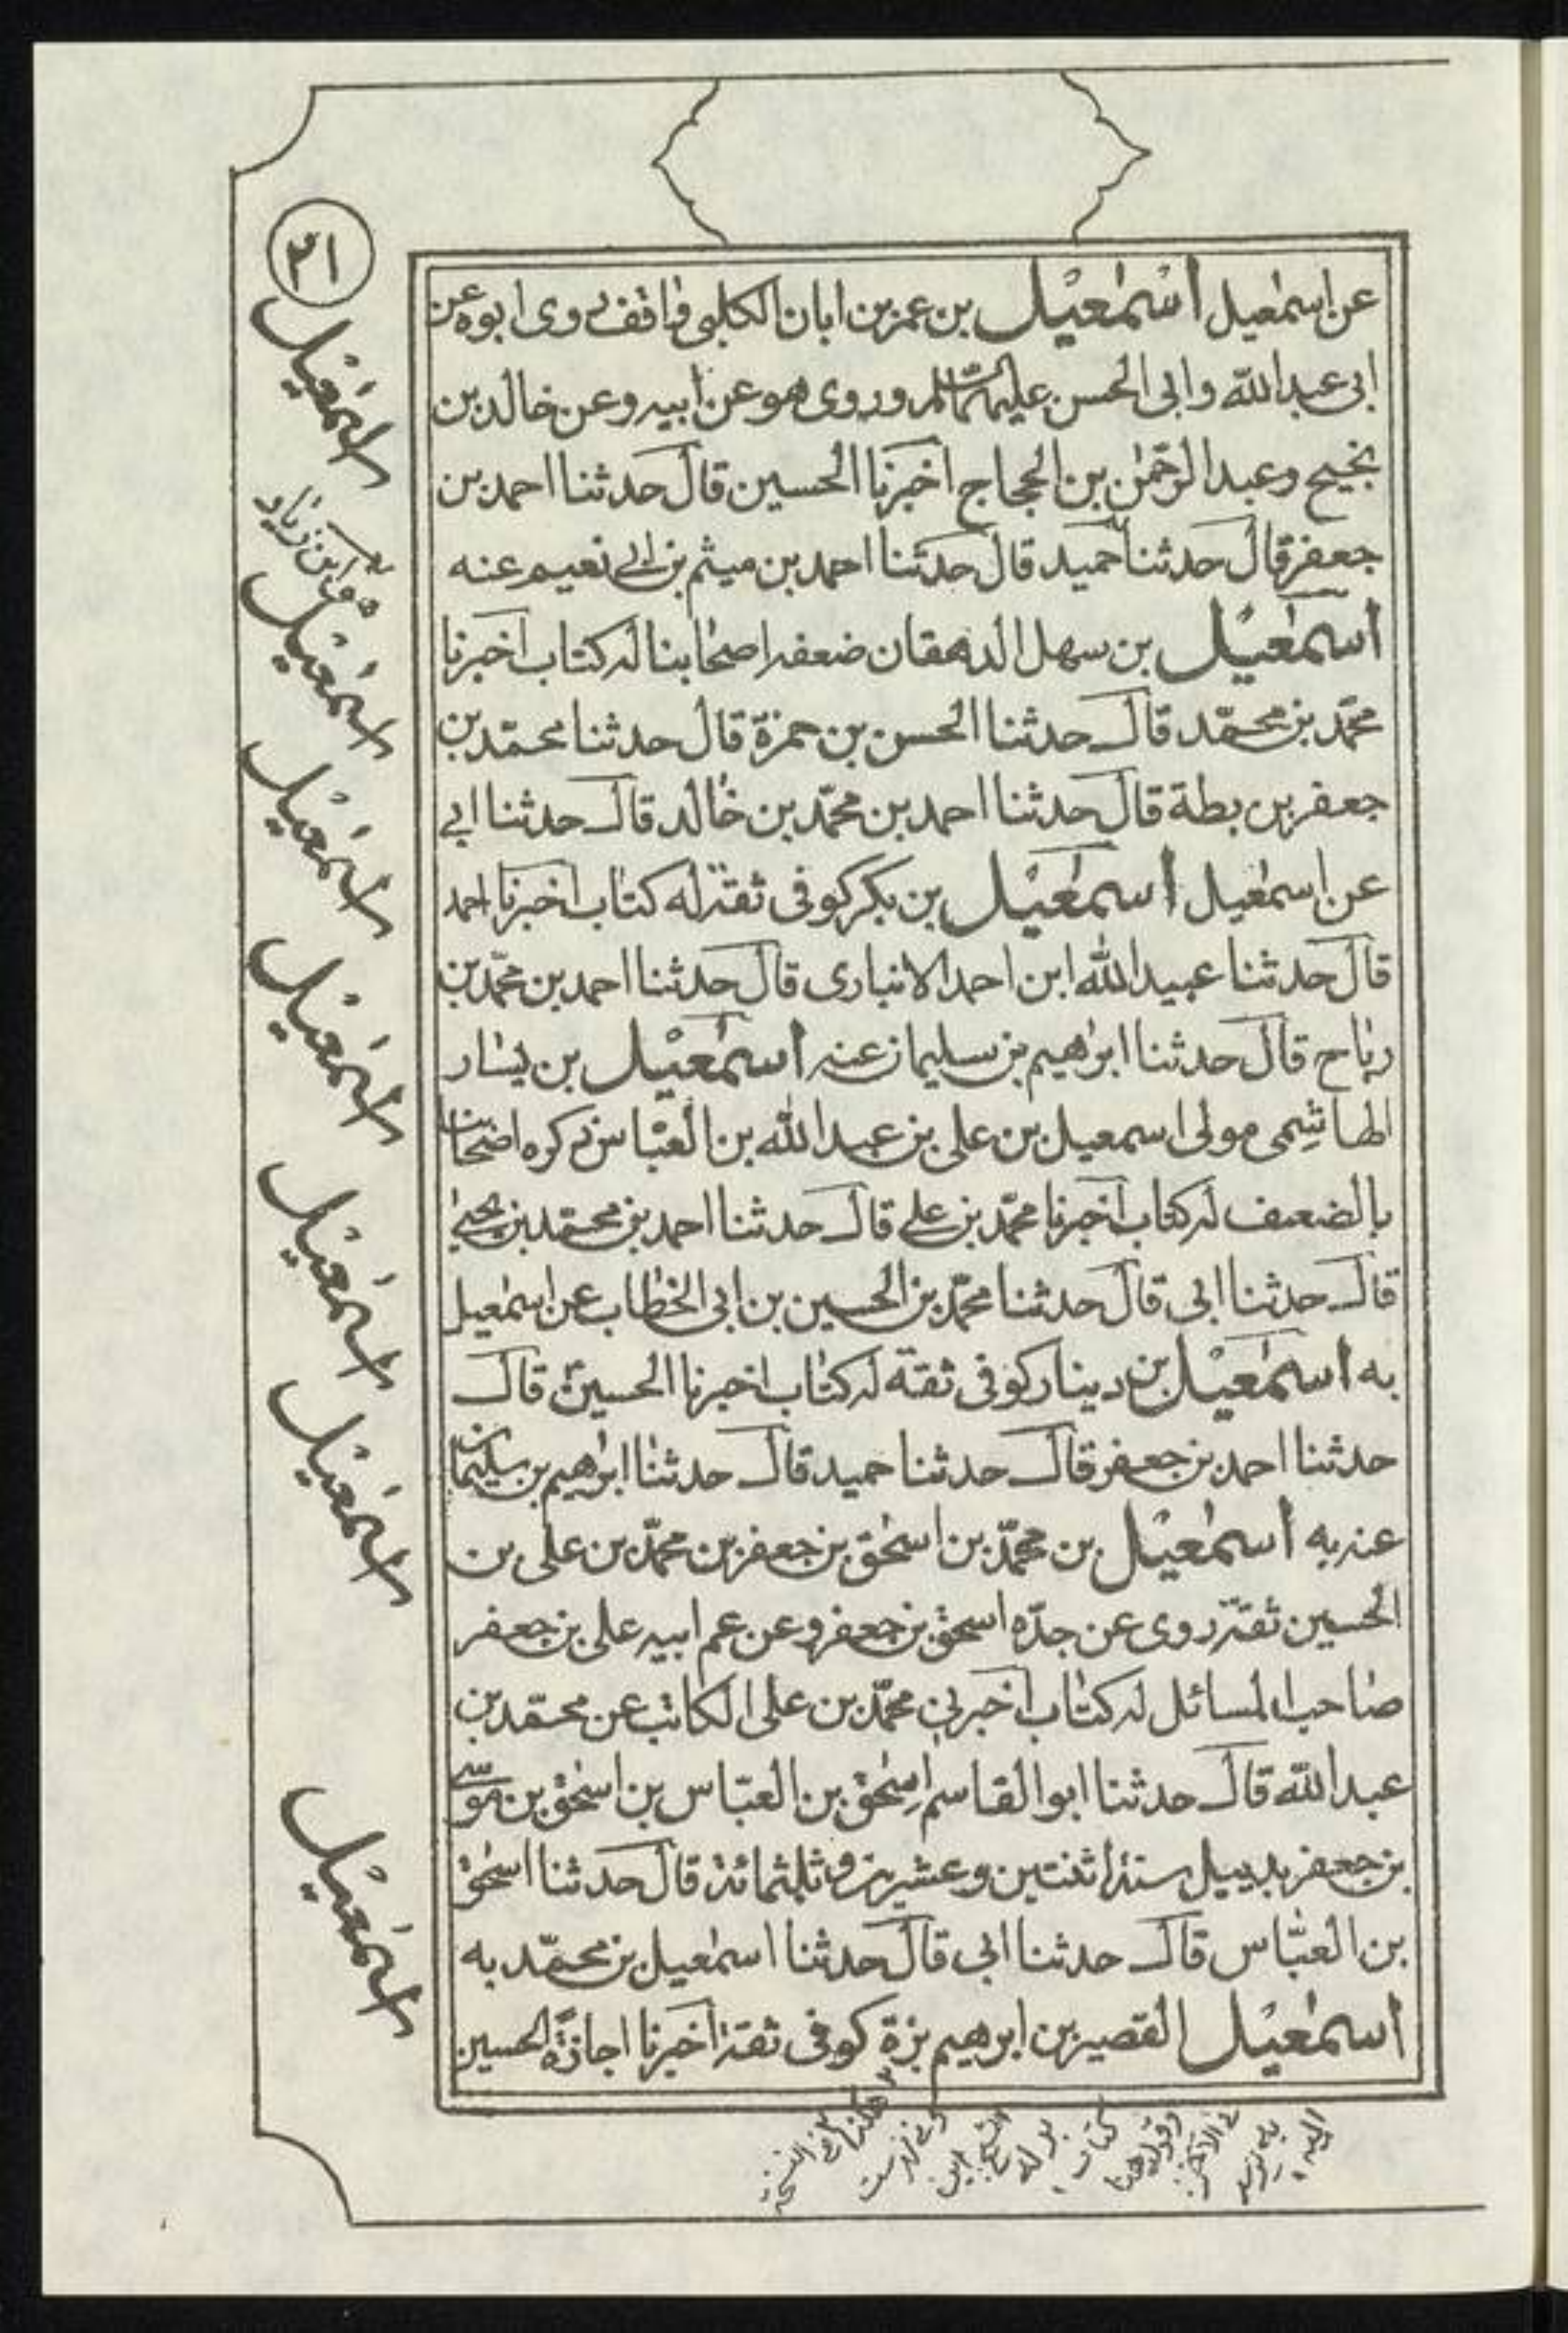 ٢١
عن اسمٰعيل اسمٰعيل بن عمر بن ابان الكلبى واقف روى ابوه عن
ابى عبد الله وابى الحسن عليهما السلم وروى هو عن ابيه وعن خالد بن
نجيح وعبد الرحمٰن بن الحجاج اخبرنا الحسين قال حدثنا احمد بن
جعفر قال حدثنا حميد قال حدثنا احمد بن ميثم بن ابى نعيم عنه
اسمٰعيل بن سهل الدهقان ضعفه اصحابنا له كتاب اخبرنا
محمّد بن محمّد قال حدثنا الحسن بن حمزة قال حدثنا محمّد بن
جعفر بن بطة قال حدثنا احمد بن محمّد بن خالد قال حدثنا ابى
عن اسمٰعيل اسمٰعيل بن بكر كوفى ثقة له كتاب اخبرنا احمد
قال حدثنا عبيد الله ابن احمد الانبارى قال حدثنا احمد بن محمّد بن
رباح قال حدثنا ابرٰهيم بن سليمان عنه اسمٰعيل بن يسار
الهاشمى مولى اسمعيل بن على بن عبد الله بن العبّاس ذكره اصحابنا
بالضعف له كتاب اخبرنا محمّد بن على قال حدثنا احمد بن محمّد بن يحيىٰ
قال حدثنا ابى قال حدثنا محمّد بن الحسين بن ابى الخطاب عن اسمٰعيل
به اسمٰعيل بن دينار كوفى ثقة له كتاب اخبرنا الحسين قال
حدثنا احمد بن جعفر قال حدثنا حميد قال حدثنا ابرٰهيم بن سليمان
عنه به اسمٰعيل بن محمّد بن اسحٰق بن جعفر بن محمّد بن على بن
الحسين ثقة روى عن جدّه اسحق بن جعفر وعن عم ابيه على بن جعفر
صاحب المسائل له كتاب اخبرنى محمّد بن على الكاتب عن محمّد بن
عبد الله قال حدثنا ابو القاسم اسحٰق بن العبّاس بن اسحٰق بن موسى
بن جعفر بدبيل سنة اثنتين وعشرين وثلثمائة قال حدثنا اسحٰق
بن العبّاس قال حدثنا ابى قال حدثنا اسمٰعيل بن محمّد به
اسمٰعيل القصير بن ابرٰهيم بزة كوفى ثقة اخبرنا اجازة الحسين
اسمٰعيل
ابن زياد
اسمٰعيل
اسمٰعيل
اسمٰعيل
اسمٰعيل
اسمٰعيل
اسمٰعيل
كتاب
هكذا فى النسخة